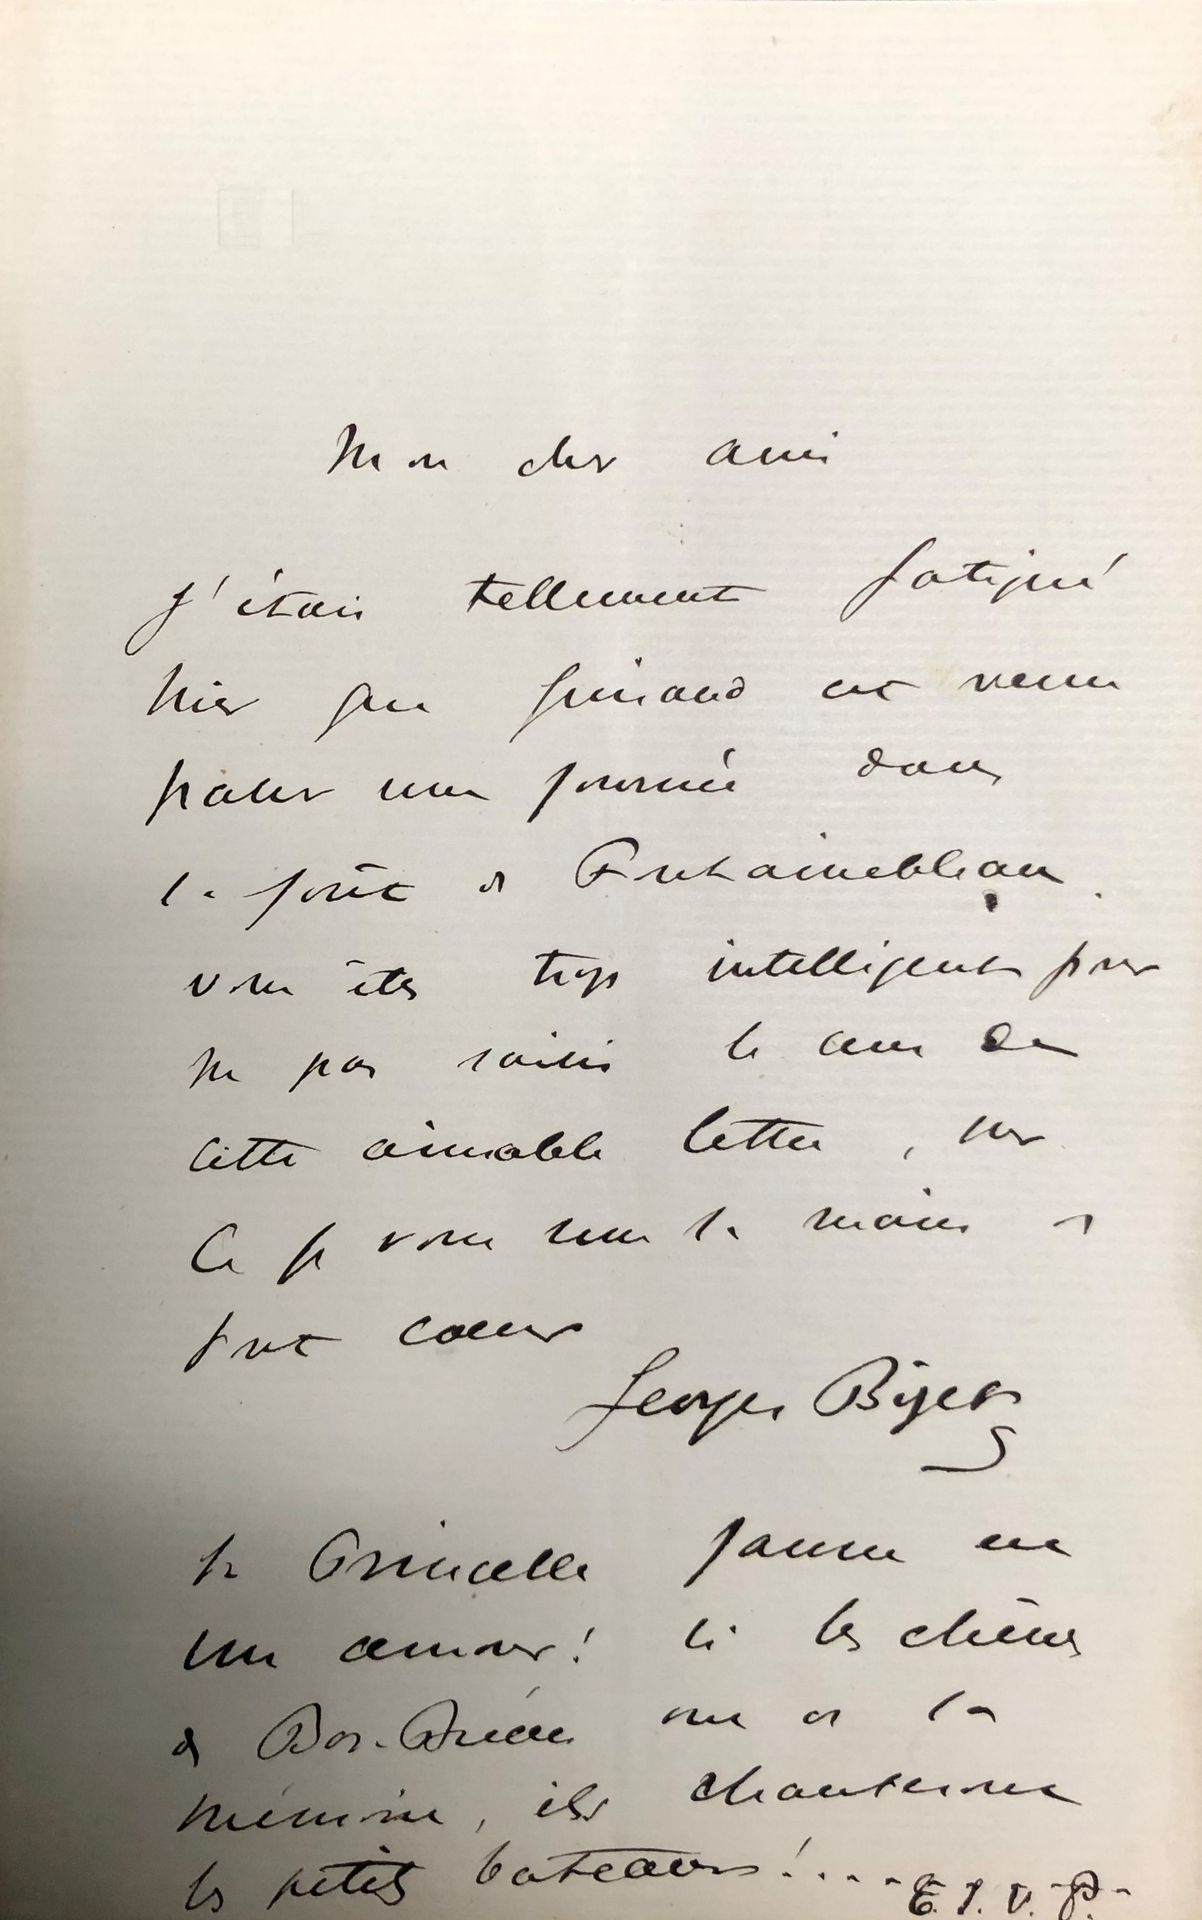 Mon cher ami
J'étais tellement fatigué
hier que Guiraud est venu
passer une journée dans
la forêt de Fontainebleau.
vous êtes trop intelligent pour
ne pas saisir le sens de
cette aimable lettre, sur
ce je vous serre la main de
tout coeur
Georges Bizet
la Princesse jaune est
un amour! si les chênes
de Bas-Bréau ont de la
mémoire, ils chanteront
les petits bateaux!....